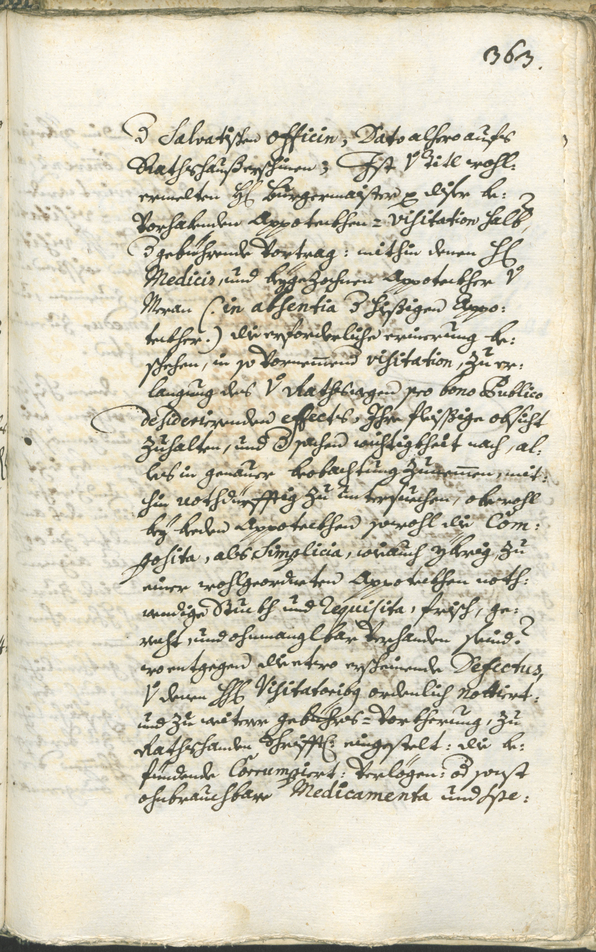 363.
d Salvatischen Officin, Dato alhero aufs
Rathshauß erschinen; Ist v titl wohl-
ermelten HH: Burgermaister p diser be:
vorhabenden Appoteckhen=Visitation halb,
d gebührende Vortrag: mithin denen HH:
Medicis, und beygezochnen Appoteckher v
Meran (: in absentia d hießigen Appo:
teckher:) die erforderliche erinerung be:
schehen, in zo vornemend visitation, zu er:
langung des v Raths wegen pro bono Publico
desiderirenden effects, Ihre fleißige obsicht
zuhalten, und d sachen wichtigkheit nach, al:
les in genauer beobachtung zunemmen, mit:
hin nothdurfftig zu untersuchen, ob wohl
bey beden Appoteckhen sowohl die Com:
posita, als Simplicia, wie auch ybrig, zu
einer wohlgeordneten Appoteckhen noth:
wendige Stuckh und Requisita, frisch, ge:
recht, und ohnmanglbar verhanden seind?
wo entgegen die etwo erscheinende Defectus,
v denen HH: Visitatoribq ordenlich nottiert:
und zu weiterer gebührs=Vorkherung, zu
Rathshanden schrifftl: eingestelt: die be:
findende Corrumpiert: verlegen: od sonst
ohnbrauchbare Medicamenta und Spe: